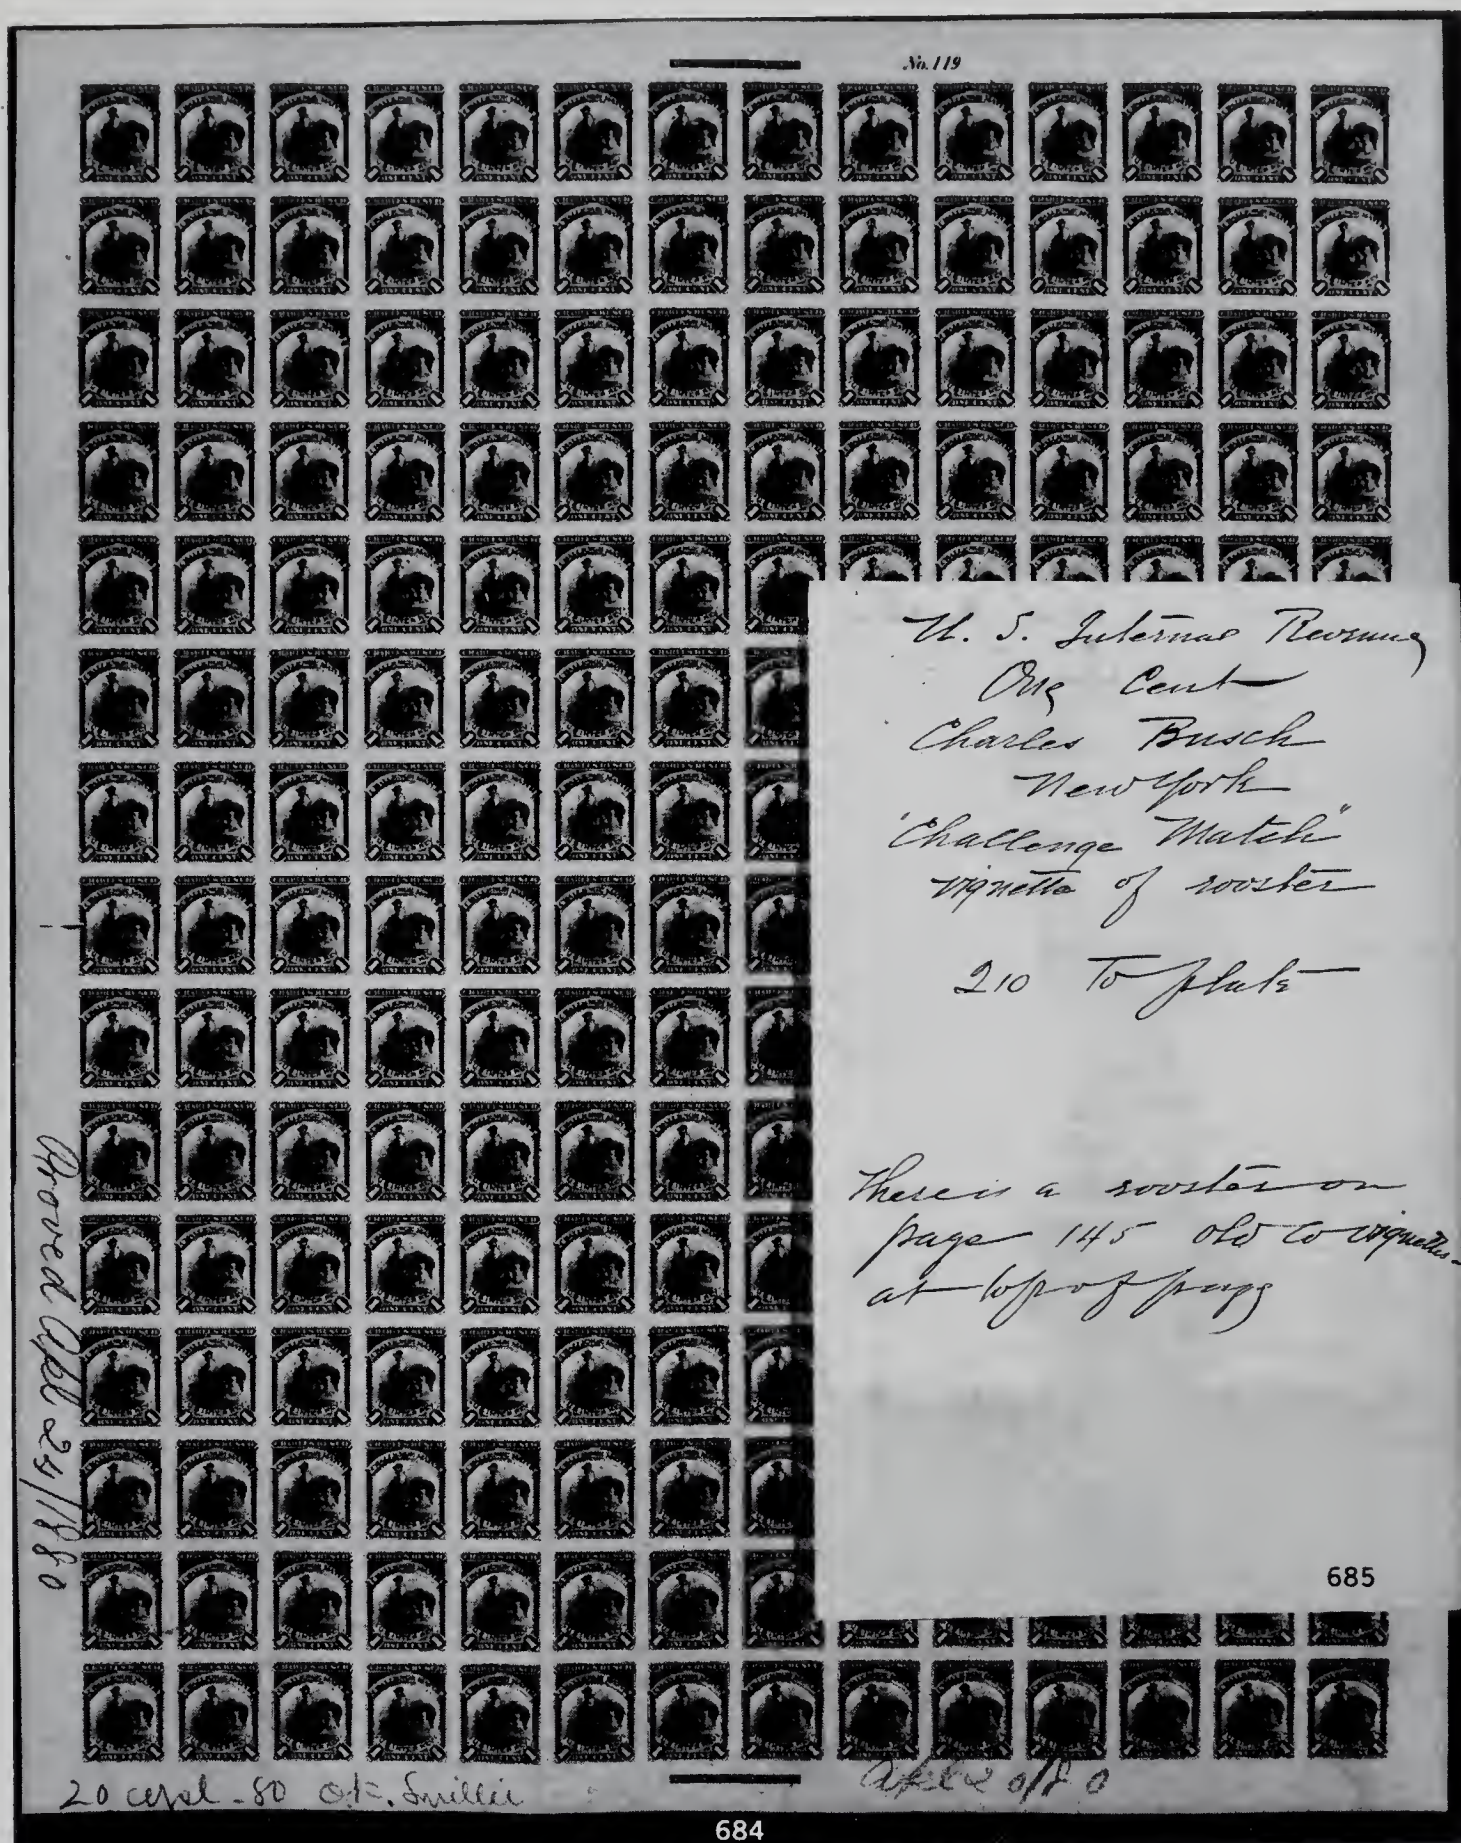 No. 119
U. S. Internal Revenue
One Cent
Charles Busch
New York
"Challenge Match"
vignette of rooster
210 To plate
There is a rooster on
page 145 old Co vignettes
at top of page
685
proved Apl 24/1880
20 apl - 80 O.K. Smillie
Apl 20/80
684